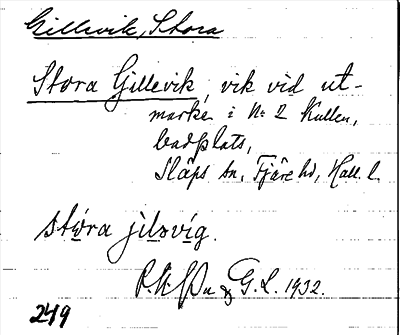 Gillevik, Stora
Stora Gillevik, vik vid ut-
marken i No 2 Kullen,
badplats,
Släps sn, Fjäre hd, Hall. l.
stóra jilǝvíg.
& G.L. 1932.
249